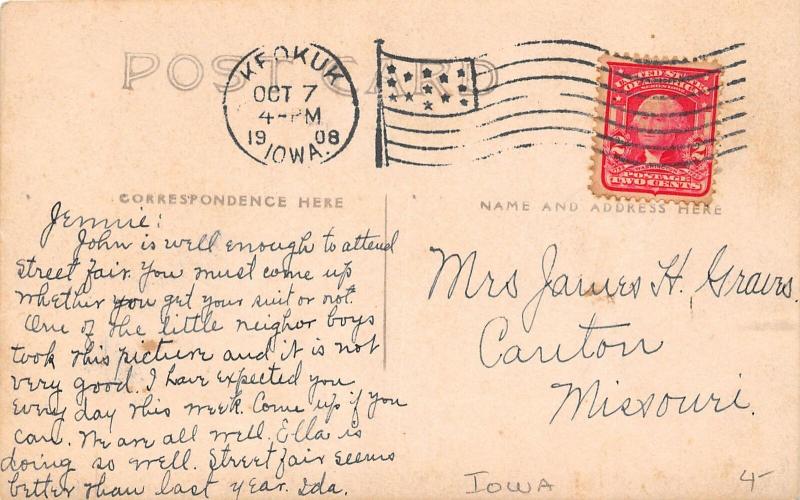 POST CARD
KEOKUK
OCT 7
4-PM
19 08
IOWA.
UNITED STATES
OF AMERICA
2 2
POSTAGE
TWO CENTS
CORRESPONDENCE HERE
NAME AND ADDRESS HERE
Jennie:
John is well enough to attend
street fair. You must come up
whether you get your suit or not.
One of the little neighor boys
took this picture and it is not
very good. I have expected you
every day this week. Come up if you
can. We are all well. Ella is
doing so well. Street fair seems
better than last year. Ida.
Mrs James H. Graves.
Canton
Missouri.
IOWA
4-